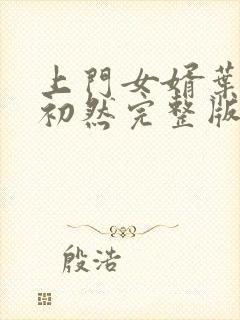 上門女婿葉
初然完整版
殷浩